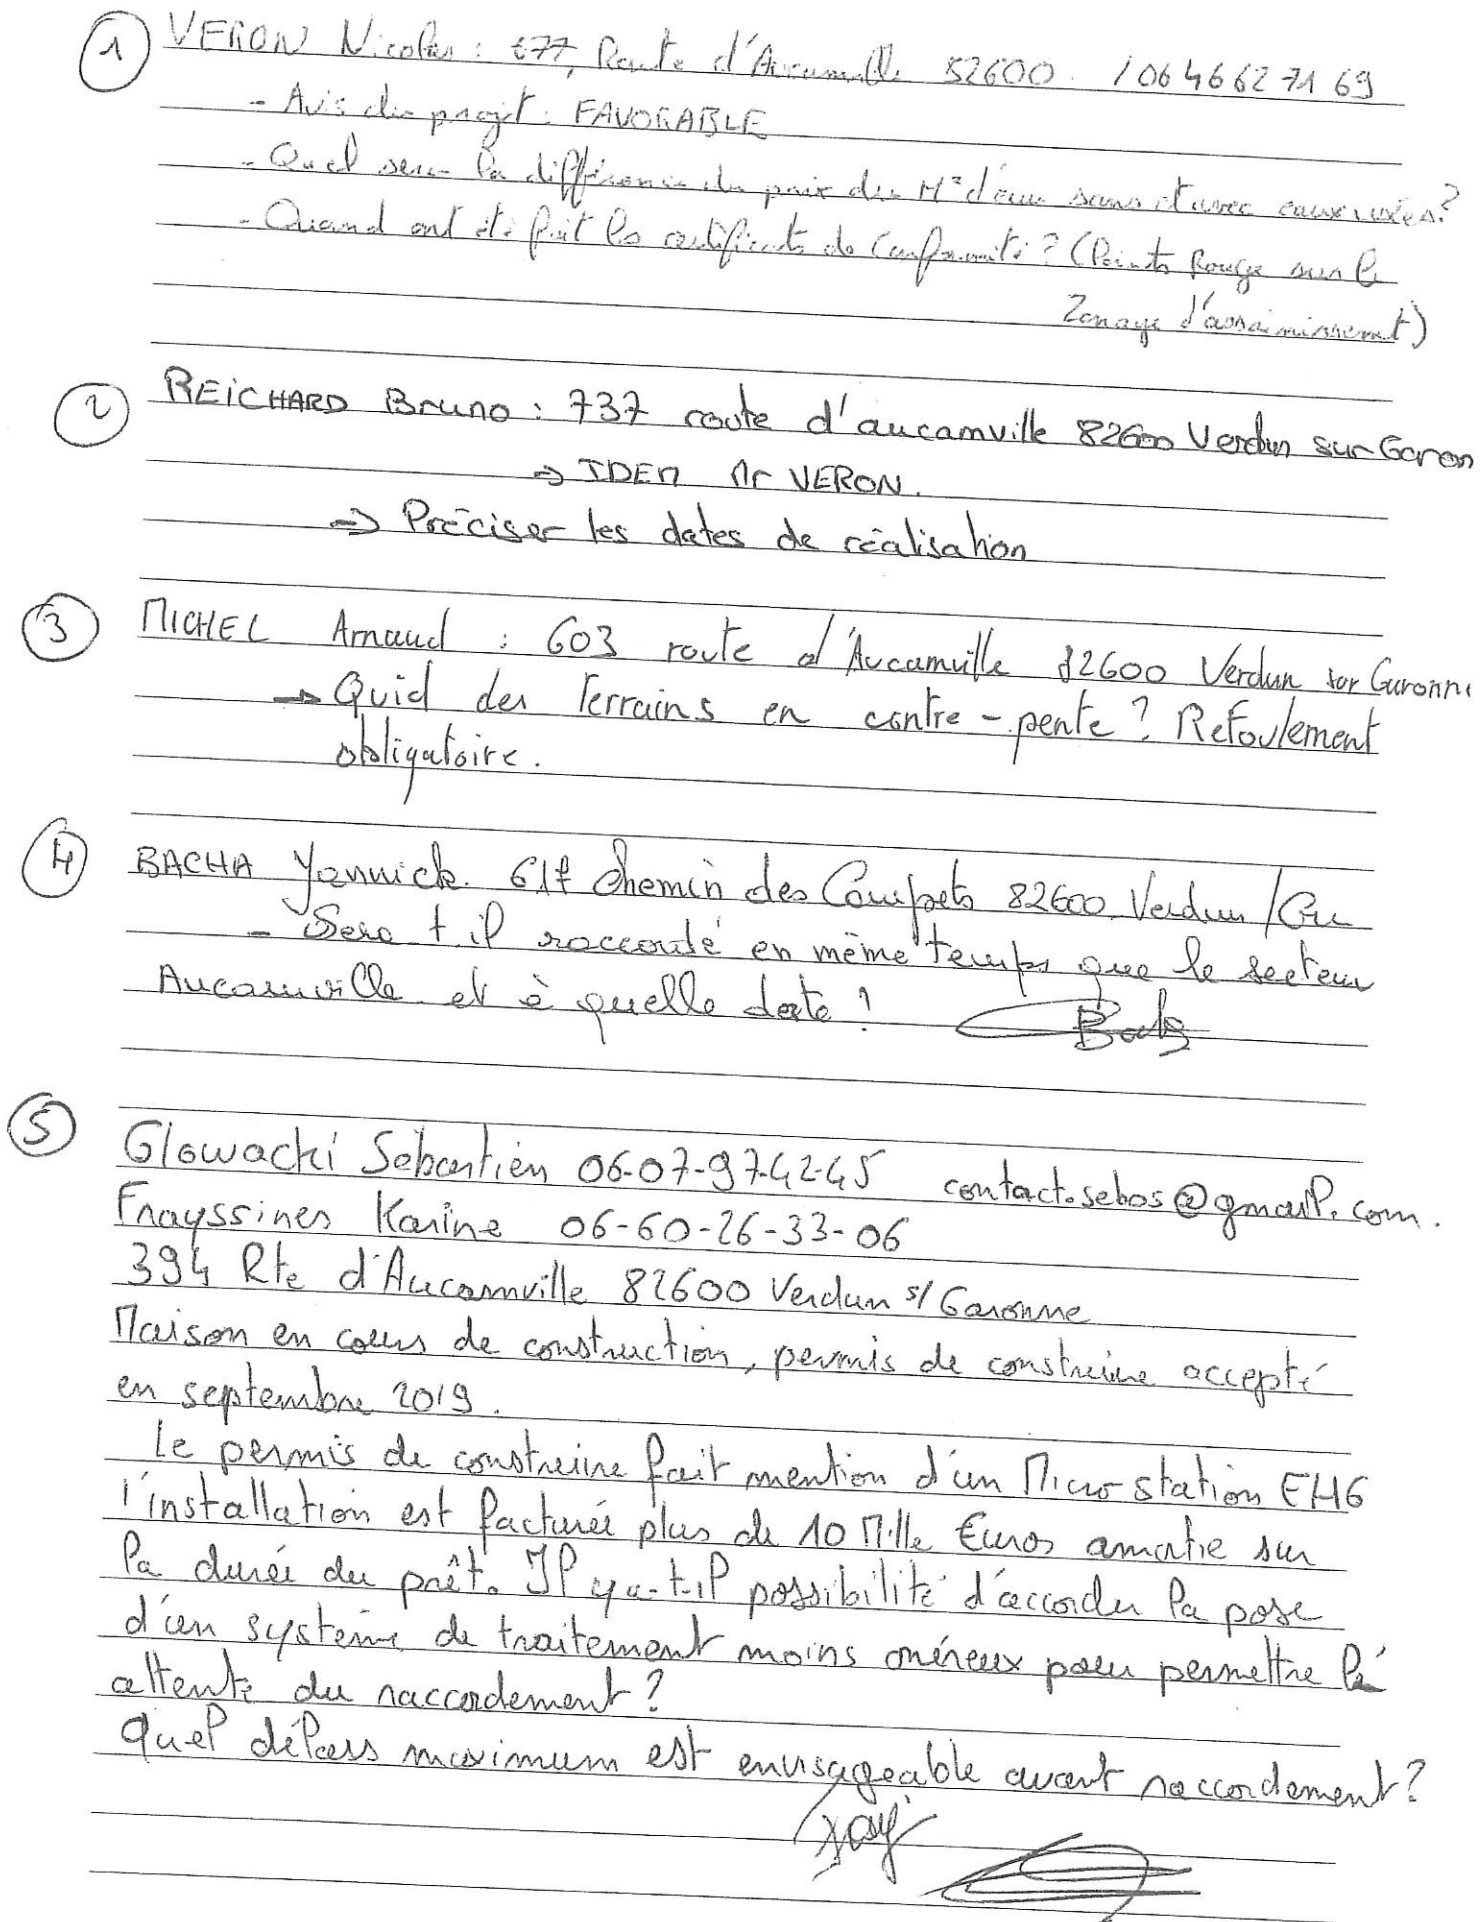 ① VERON Nicolas : 677, Route d'Aucamville 82600. / 06 46 62 71 69
- Avis du projet : FAVORABLE
- Quel sera la différence du prix du M³ d'eau sans et avec eaux usées ?
- Quand ont été fait les certificats de Conformité ? (Points Rouge sur le
Zonage d'assainissement)
② REICHARD Bruno : 737 route d'aucamville 82600 Verdun sur Garon
⇒ IDEM Mr VERON.
⇒ Préciser les dates de réalisation
③ MICHEL Arnaud : 603 route d'Aucamville 82600 Verdun sur Garonne
→ Quid des Terrains en contre-pente ? Refoulement
obligatoire.
④ BACHA Yannick. 617 Chemin des 82600 Verdun /
- Sera t.il raccordé en même temps que le secteur
Aucamville et à quelle date ?
⑤ Glowacki Sébastien 06-07-97-42-45 contact.sebos@gmail.com.
Frayssines Karine 06-60-26-33-06
394 Rte d'Aucamville 82600 Verdun s/ Garonne
Maison en cours de construction, permis de construire accepté
en septembre 2019.
Le permis de construire fait mention d'un Micro station EH6
l'installation est facturée plus de 10 Mille Euros amortie sur
la durée du prêt. Il y a-t-il possibilité d'accorder la pose
d'un système de traitement moins onéreux pour permettre l'
attente du raccordement ?
Quel délais maximum est envisageable avant raccordement ?